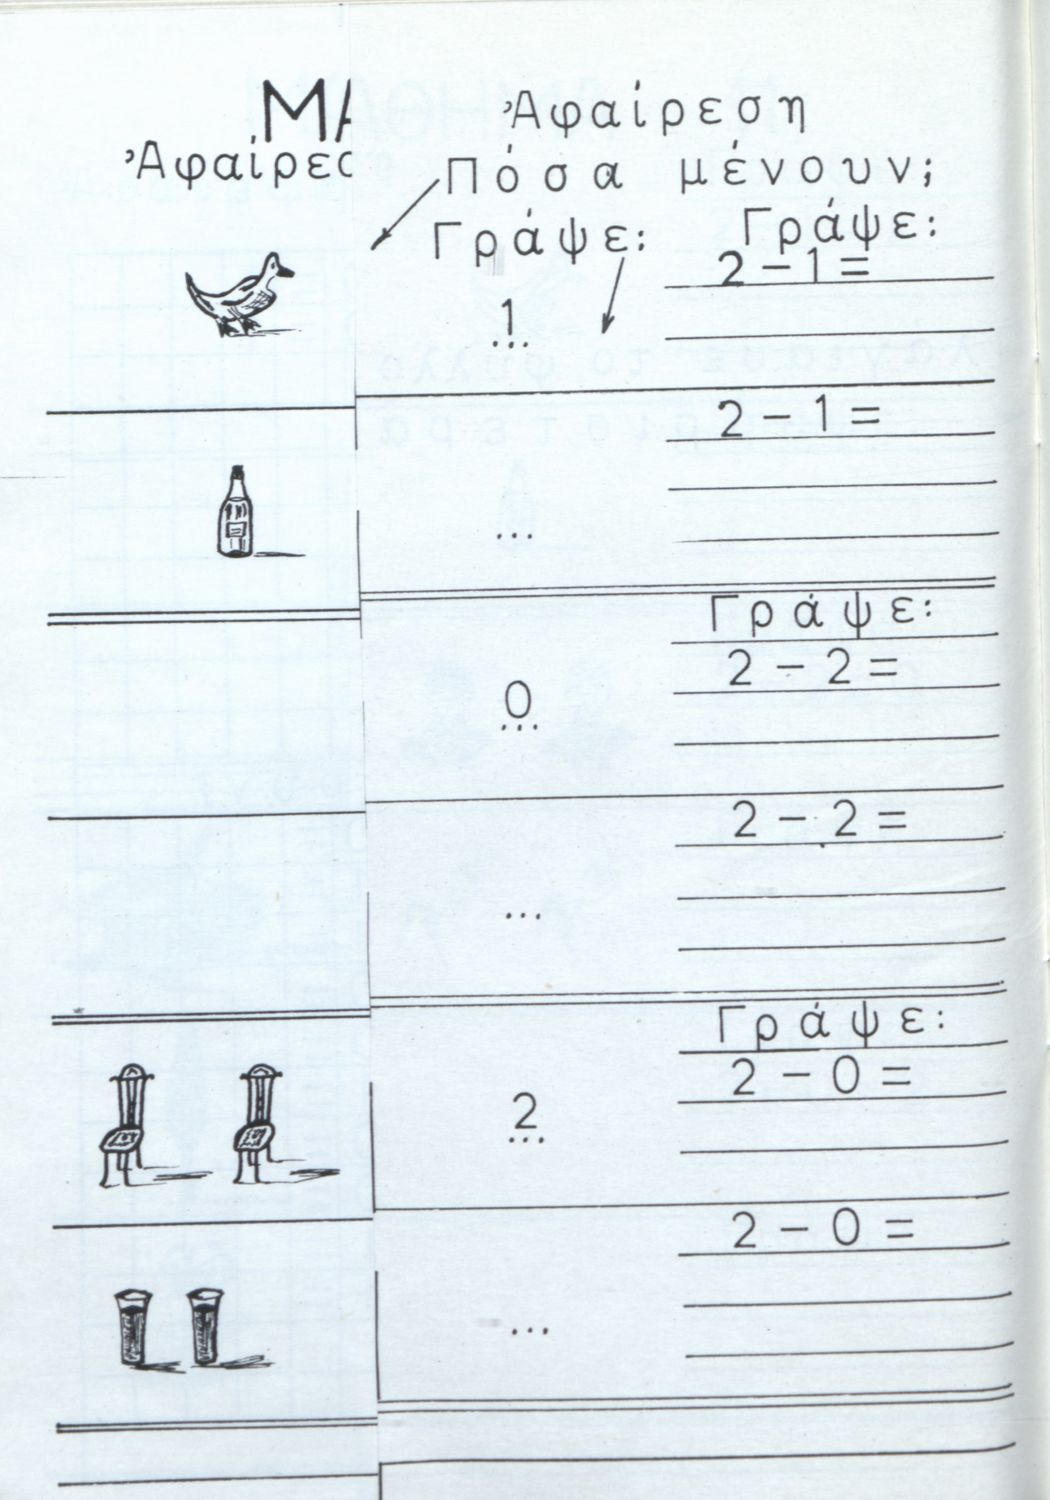 ΜΑ
Ἀφαίρεσ
Ἀφαίρεση
Πόσα μένουν;
Γράψε: Γράψε:
2 – 1 =
1
...
2 – 1 =
...
Γράψε:
2 – 2 =
0
...
2 – 2 =
...
Γράψε:
2 – 0 =
2
...
2 – 0 =
...